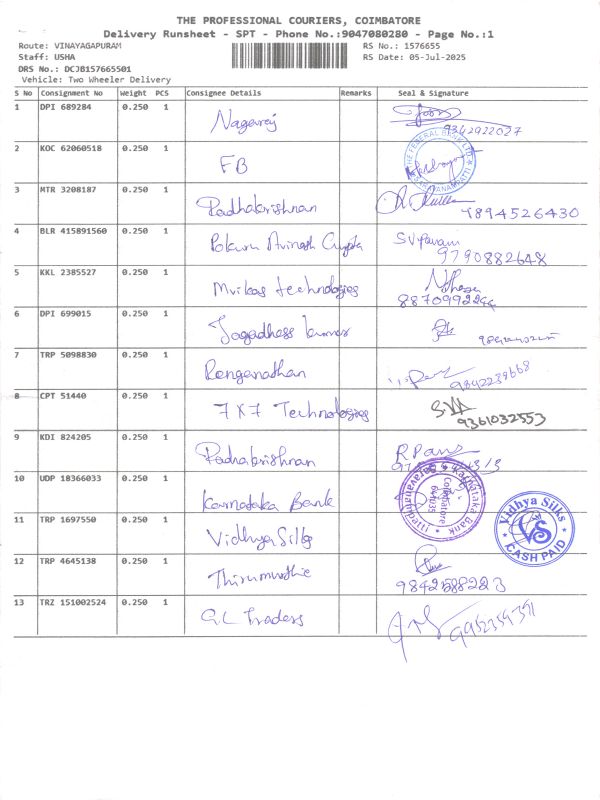 THE PROFESSIONAL COURIERS, COIMBATORE
Delivery Runsheet - SPT - Phone No.:9047080280 - Page No.:1
Route: VINAYAGAPURAM RS No.: 1576655
Staff: USHA RS Date: 05-Jul-2025
DRS No.: DCJB157665501
Vehicle: Two Wheeler Delivery
S No Consignment No Weight PCS Consignee Details Remarks Seal & Signature
1 DPI 689284 0.250 1 Nagaraj
9342922027
2 KOC 62060518 0.250 1 FB THE FEDERAL BANK LTD. SARAVANAMPATTI
3 MTR 3208187 0.250 1 Radhakrishnan
4894526430
4 BLR 415891560 0.250 1 Avinash Gupta
9790882648
5 KKL 2385527 0.250 1 Mvikas technologies
6 DPI 699015 0.250 1
7 TRP 5098830 0.250 1 Renganathan 9842239668
8 CPT 51440 0.250 1 7X7 Technologies
9361032553
9 KDI 824205 0.250 1 Radhakrishnan
10 UDP 18366033 0.250 1 Karnataka Bank Karnataka Bank Coimbatore 641035
11 TRP 1697550 0.250 1 Vidhya Silks Vidhya Silks VS CASH PAID
12 TRP 4645138 0.250 1
9842588223
13 TRZ 151002524 0.250 1 G.L Traders